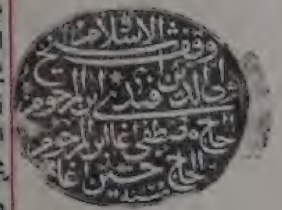 وقف شيخ الاسلام
ولى الدين افندى ابن المرحوم
الحاج مصطفى اغا ابن المرحوم
الحاج حسين اغا
سنه